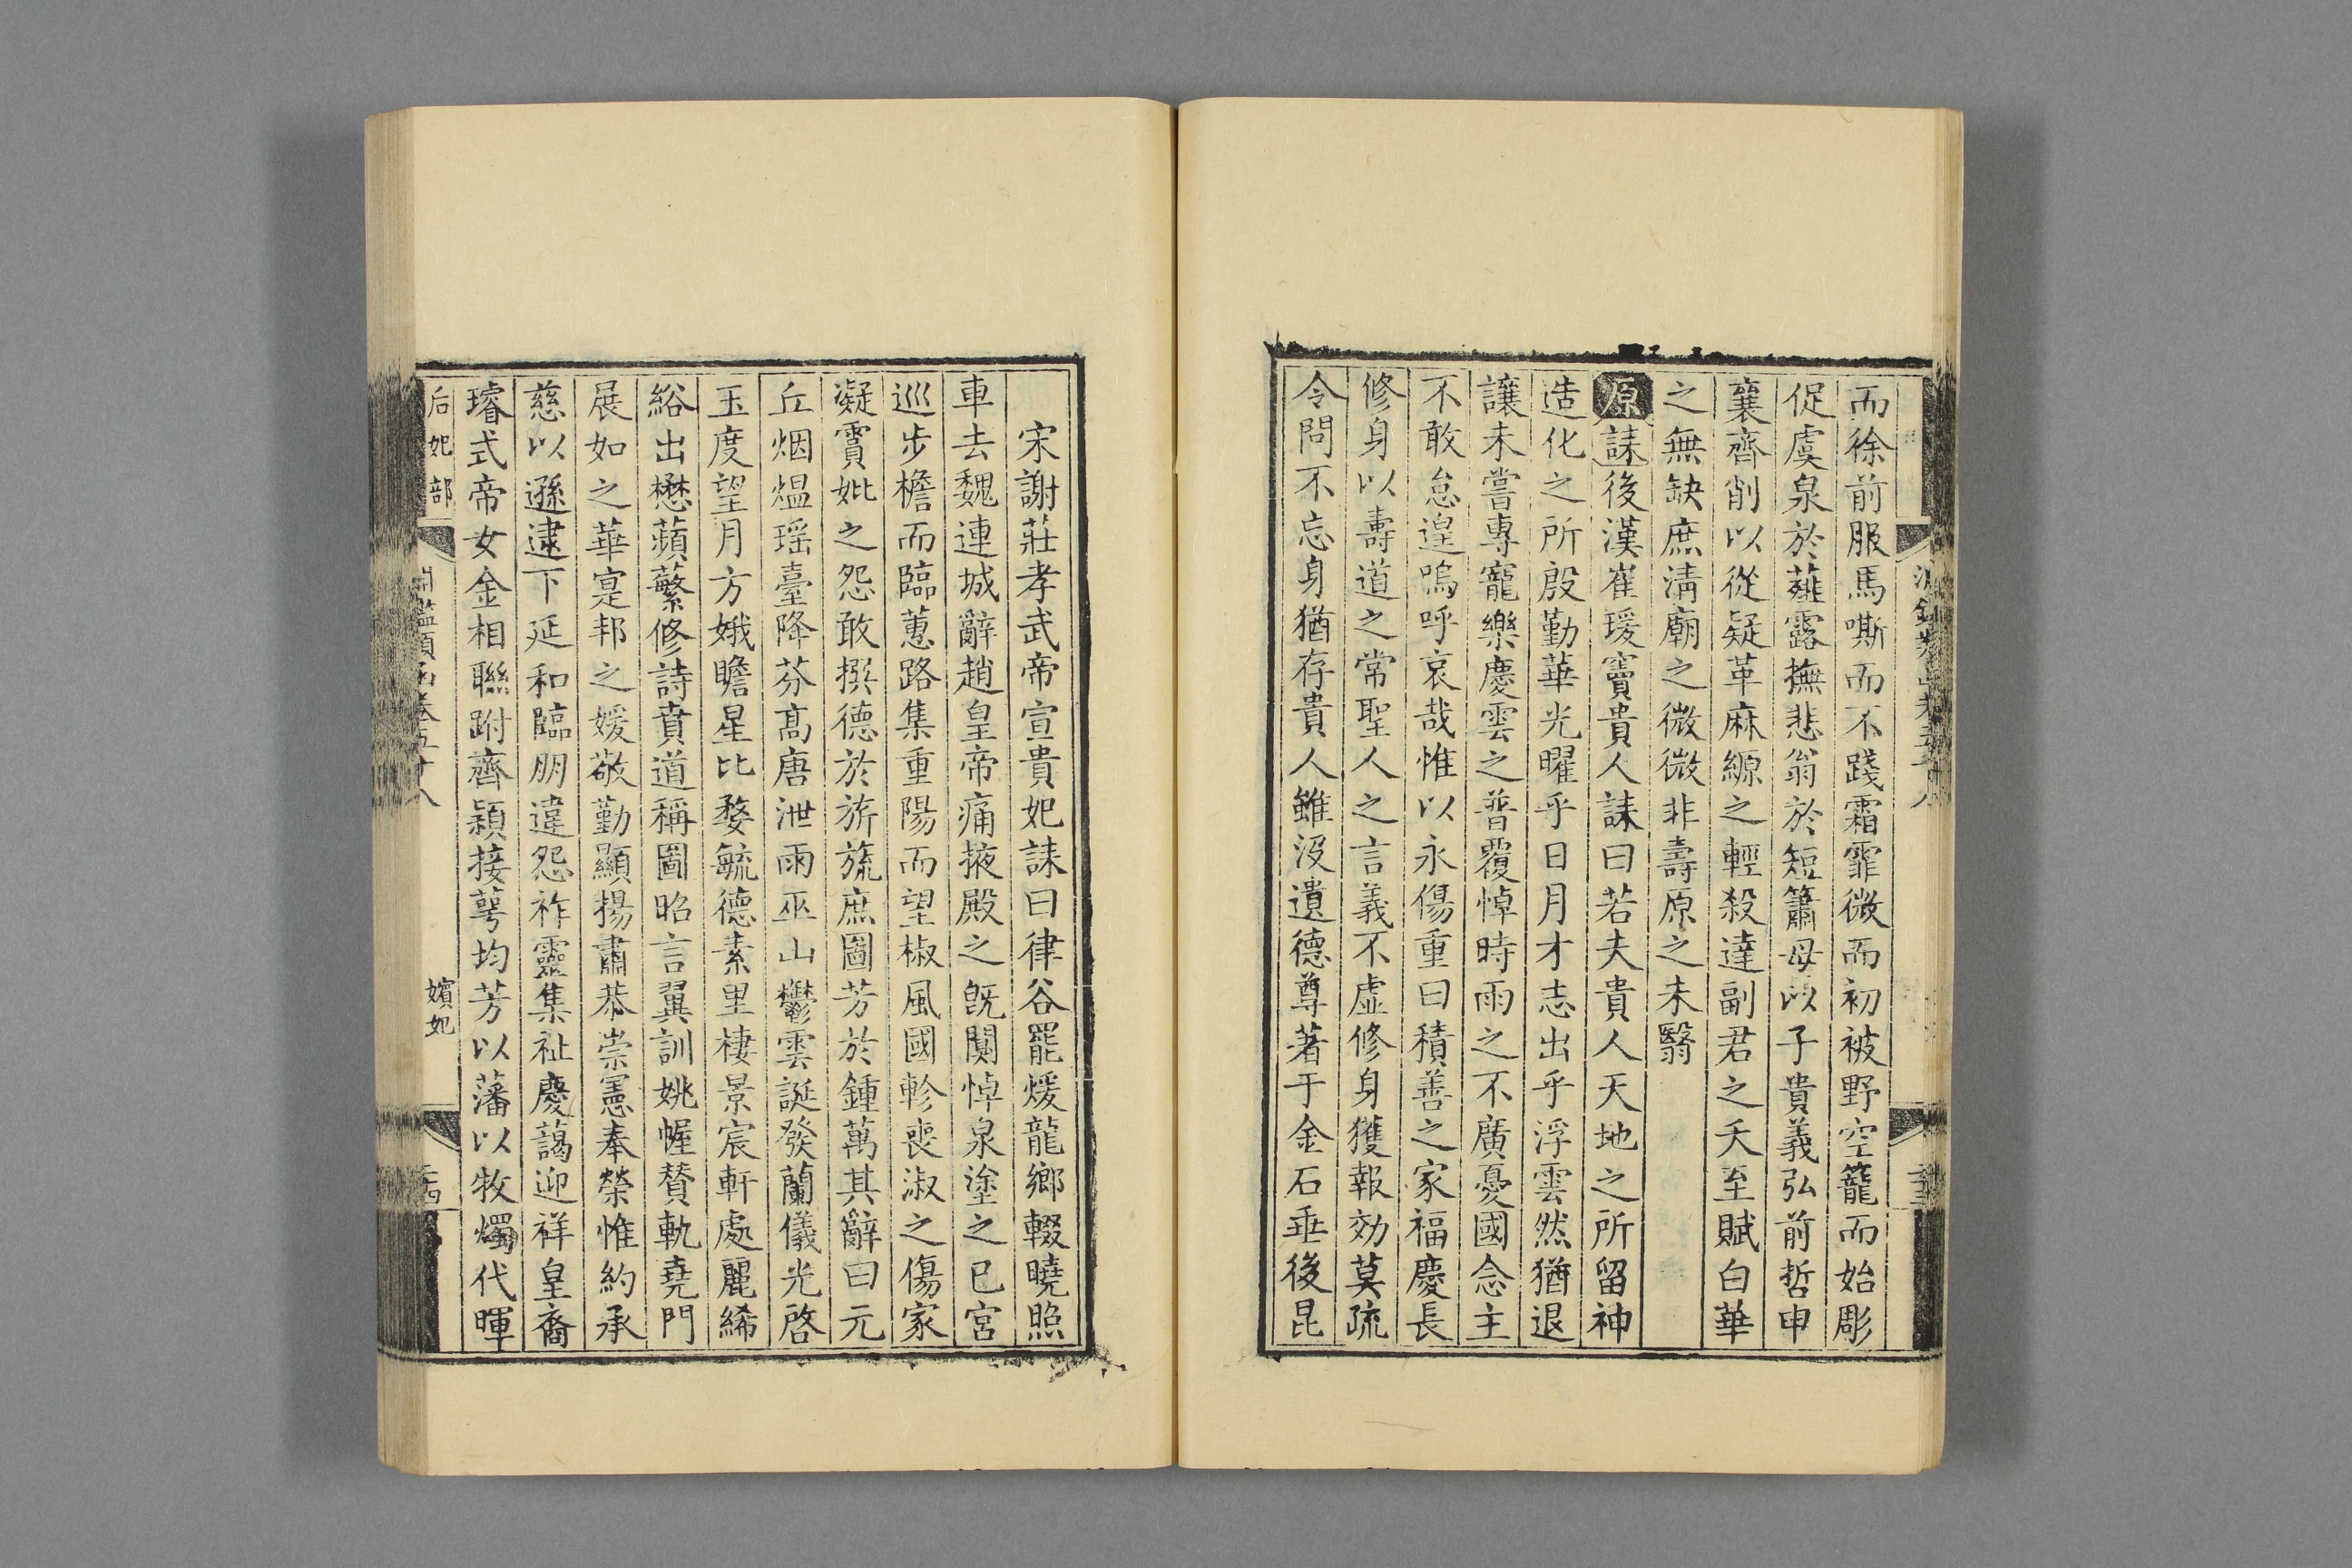 而徐前服馬嘶而不踐霜霏微而初被野空籠而始彫
促虞泉於薤露撫悲翁於短簫母以子貴義弘前哲申
襄齊削以從疑革麻縓之輕殺達副君之夭至賦白華
之無缺庶淸廟之微微非壽原之未翳
原誄後漢崔瑗竇貴人誄曰若夫貴人天地之所留神
造化之所殷勤華光曜乎日月才志出乎浮雲然猶退
讓未嘗專寵樂慶雲之普覆悼時雨之不廣憂國念主
不敢怠遑嗚呼哀哉惟以永傷重曰積善之家福慶長
修身以壽道之常聖人之言義不虛修身獲報効莫疏
令問不忘身猶存貴人雖沒遺德尊著于金石垂後昆
宋謝莊孝武帝宣貴妃誄曰律谷罷煖龍鄉輟曉照
車去魏連城辭趙皇帝痛掖殿之旣闃悼泉塗之已宮
巡步檐而臨蕙路集重陽而望椒風國軫喪淑之傷家
凝霣妣之怨敢撰德於旂旒庶圖芳於鍾萬其辭曰元
丘烟熅瑶臺降芬高唐泄雨巫山鬱雲誕發蘭儀光啓
玉度望月方娥瞻星比婺毓德素里棲景宸軒處麗絺
綌出懋蘋蘩修詩賁道稱圖昭言翼訓姚幄贊軌堯門
展如之華寔邦之媛敬勤顯揚肅恭崇憲奉榮惟約承
慈以遜逮下延和臨朋違怨祚靈集祉慶藹迎祥皇裔
璿式帝女金相聯跗齊穎接萼均芳以藩以牧燭代暉
后妃部
嬪妃